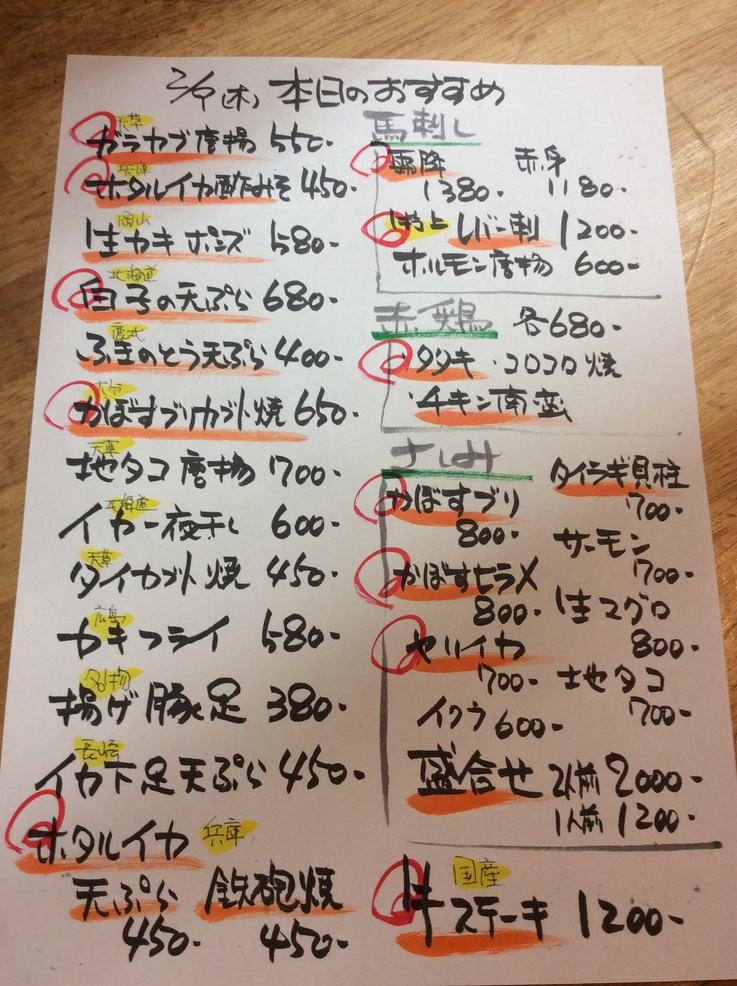 2/9(木) 本日のおすすめ
天草
ガラカブ唐揚 550-
兵庫
ホタルイカ酢みそ 450-
岡山
生カキポンズ 580-
北海道
白子の天ぷら 680-
ふきのとう天ぷら 400-
大分
かぼすブリカブト焼 650-
天草
地タコ唐揚 700-
北海道
イカ一夜干し 600-
天草
タイカブト焼 450-
広島
カキフライ 580-
名物
揚げ豚足 380-
長崎
イカ下足天ぷら 450-
ホタルイカ 兵庫
天ぷら 鉄砲焼
450- 450-
馬刺し
霜降 赤身
1380- 1180-
特上 レバー刺 1200-
ホルモン唐揚 600-
赤鶏 各680-
・タタキ ・コロコロ焼
・チキン南蛮
さしみ
かぼすブリ
800-
かぼすヒラメ
800-
ヤリイカ
700-
イクラ 600-
タイラギ貝柱
700-
サーモン
700-
生マグロ
800-
地タコ
700-
盛合せ 2人前 2000-
1人前 1200-
国産
牛ステーキ 1200-